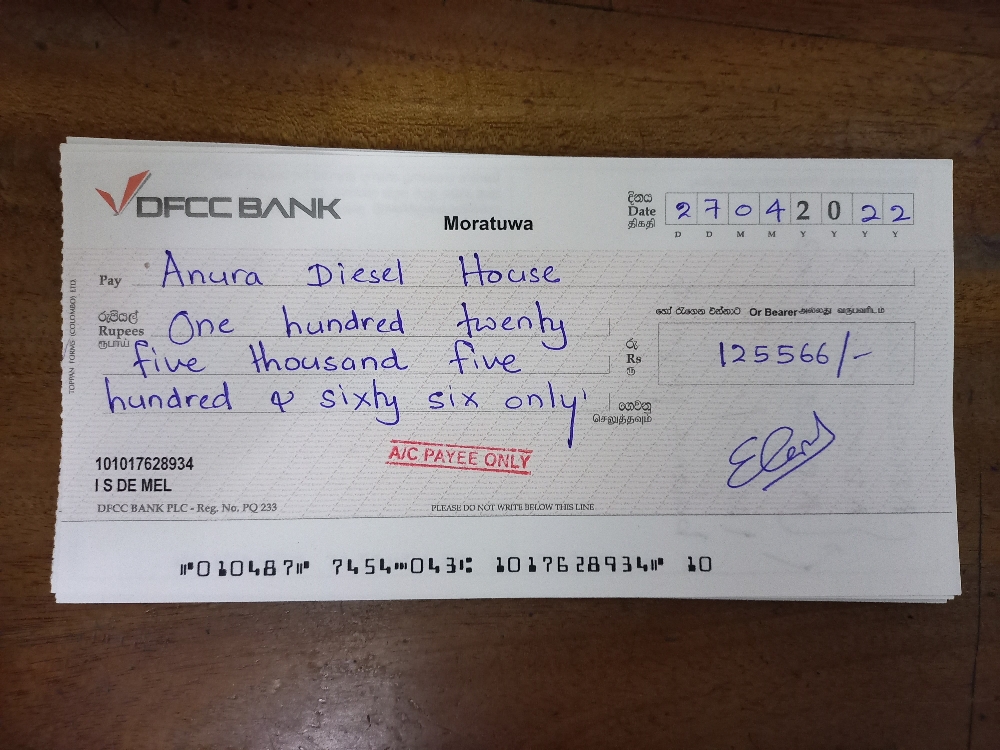 DFCC BANK
Moratuwa
දිනය
Date
திகதி
2 7 0 4 2 0 2 2
D D M M Y Y Y Y
Pay Anura Diesel House
හෝ රැගෙන එන්නාට Or Bearer அல்லது வருபவரிடம்
රුපියල්
Rupees
ரூபாய்
One hundred twenty
five thousand five
hundred & sixty six only
රු
Rs
ரூ
125566/-
ගෙවනු
செலுத்தவும்
A/C PAYEE ONLY
101017628934
I S DE MEL
DFCC BANK PLC - Reg. No. PQ 233
PLEASE DO NOT WRITE BELOW THIS LINE
TOPPAN FORMS (COLOMBO) LTD.
⑈010487⑈ 7454⑉043⑆ 1017628934⑈ 10